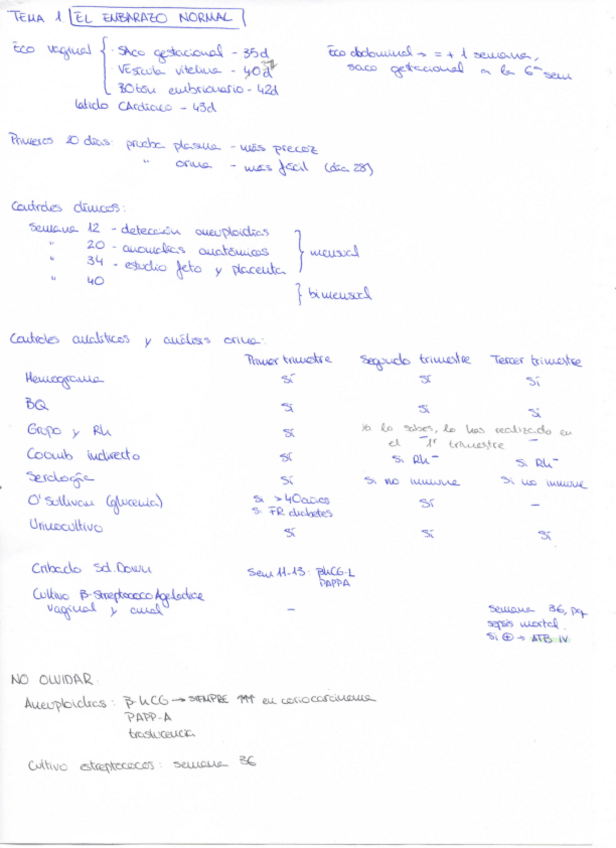 TEMA 1 EL EMBARAZO NORMAL
Eco vaginal { · Saco gestacional - 35d
· Vesícula vitelina - 40d
· Botón embrionario - 42d
latido CArdiaco - 43d
Eco abdominal → = + 1 semana,
saco gestacional a la 6ª sem
Primeros 20 días: prueba plasma - más precoz
" orina - más fácil (día 28)
Controles clínicos:
Semana 12 - detección aneuploidías
" 20 - anomalías anatómicas
" 34 - estudio feto y placenta
} mensual
" 40
} bimensual
Controles analíticos y análisis orina:
Primer trimestre Segundo trimestre Tercer trimestre
Hemograma Sí Sí Sí
BQ Sí Sí Sí
Grupo y Rh Sí Ya lo sabes, lo has realizado en
el 1er trimestre – –
Coomb indirecto Sí Si Rh- Si Rh-
Serología Sí Si no inmune Si no inmune
O'Sullivan (glucemia) Si >40años Sí –
Si FR diabetes
Urinocultivo Sí Sí Sí
Cribado Sd. Down Sem 11-13: βhCG-L
PAPPA
Cultivo β-Streptococo Agalactiae
vaginal y anal – Semana 36, pq
sepsis mortal.
Si ⊕ → ATB IV
NO OLVIDAR:
Aneuploidías: β-hCG → SIEMPRE ↑↑↑ en coriocarcinoma
PAPP-A
traslucencia
Cultivo estreptococos: semana 36